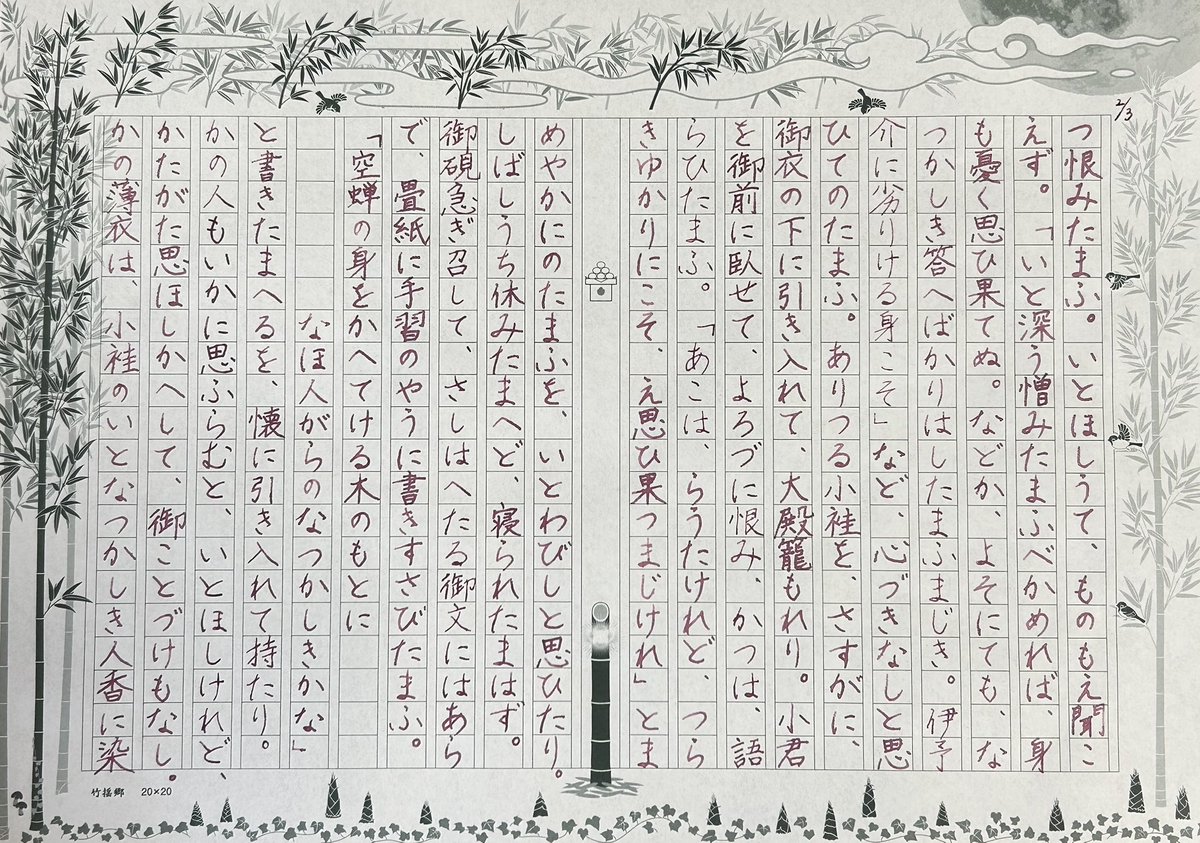 2/3
つ恨みたまふ。いとほしうて、ものもえ聞こ
えず。「いと深う憎みたまふべかめれば、身
も憂く思ひ果てぬ。などか、よそにても、な
つかしき答へばかりはしたまふまじき。伊予
介に劣りける身こそ」など、心づきなしと思
ひてのたまふ。ありつる小袿を、さすがに、
御衣の下に引き入れて、大殿籠もれり。小君
を御前に臥せて、よろづに恨み、かつは、語
らひたまふ。「あこは、らうたけれど、つら
きゆかりにこそ、え思ひ果つまじけれ」とま
めやかにのたまふを、いとわびしと思ひたり。
しばしうち休みたまへど、寝られたまはず。
御硯急ぎ召して、さしはへたる御文にはあら
で、畳紙に手習のやうに書きすさびたまふ。
「空蝉の身をかへてける木のもとに
なほ人がらのなつかしきかな」
と書きたまへるを、懐に引き入れて持たり。
かの人もいかに思ふらむと、いとほしけれど、
かたがた思ほしかへして、御ことづけもなし。
かの薄衣は、小袿のいとなつかしき人香に染
竹搖郷 20×20